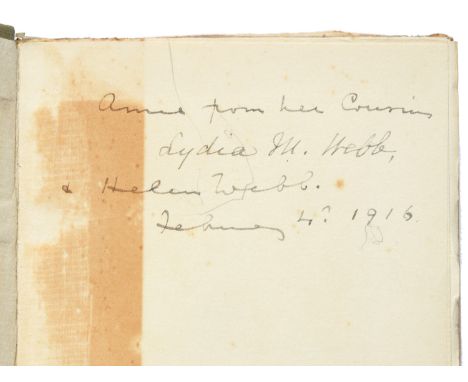 Anna from her Cousins
Lydia M. Webb,
& Helen Webb.
February 4th 1916